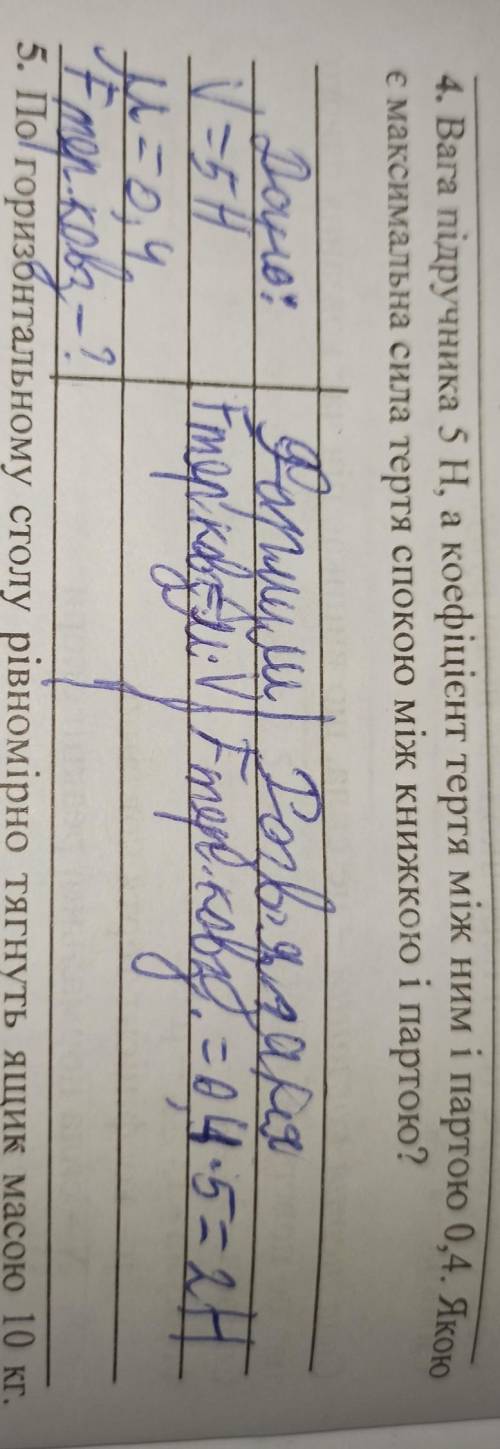 4. Вага підручника 5 Н, а коефіцієнт тертя між ним і партою 0,4. Якою
є максимальна сила тертя спокою між книжкою і партою?
Дано: Формули Розв'язання
V = 5 Н Fтер.ковз. = μ · V Fтер.ковз. = 0,4 · 5 = 2 Н
μ = 0,4
Fтер.ковз. – ?
5. По горизонтальному столу рівномірно тягнуть ящик масою 10 кг.